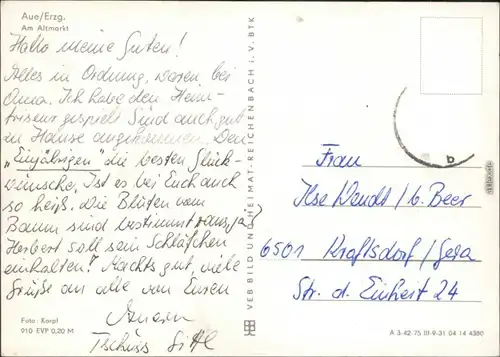 Aue/Erzg.
Am Altmarkt
Hallo meine Guten!
Alles in Ordnung, waren bei
Oma. Ich habe den Heim-
friseur gespielt Sind auch gut
in Hause angekommen. Den
"Einjährigen" die besten Glück
wünsche. Ist es bei Euch auch
so heiß. Die Blüten vom
Baum sind bestimmt
Herbert soll sein Schläfchen
einhalten! Machts gut, viele
Grüße an alle von Euren
Tschüss
Foto: Karpf
910 EVP 0,20 M
VEB BILD UND HEIMAT · REICHENBACH i. V. BTK
b
Frau
Ilse Wendt / b. Beer
6501 Kraftsdorf / Gera
Str. d. Einheit 24
A 3-42-75 III-9-31 04 14 4380